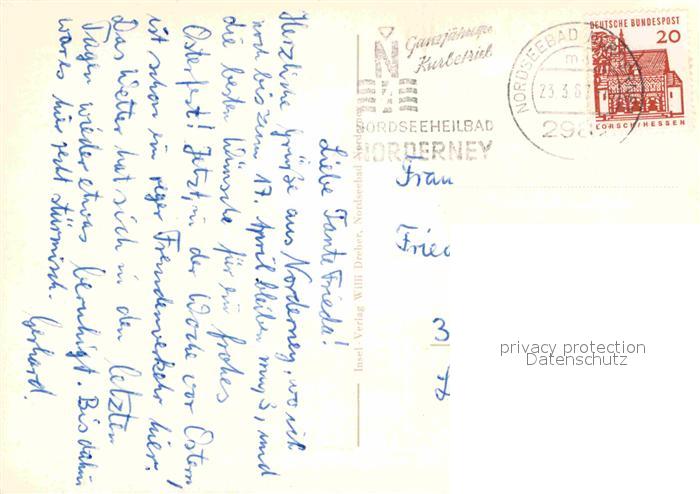 Liebe Tante Frieda!
Herzliche Grüße aus Norderney, wo ich
noch bis zum 17. April bleiben muß, und
die besten Wünsche für ein frohes
Osterfest! Jetzt, in der Woche vor Ostern,
ist schon ein reger Fremdenverkehr hier.
Das Wetter hat sich in den letzten
Tagen wieder etwas beruhigt. Bis dahin
war es hier recht stürmisch. Gerhard.
Insel Verlag Willi Dreher, Nordseebad Norderney
Ganzjähriger
Kurbetrieb
NORDSEEHEILBAD
NORDERNEY
NORDSEEBAD
23.3.67
298
DEUTSCHE BUNDESPOST
20
LORSCH/HESSEN
Frau
Fried
privacy protection
Datenschutz